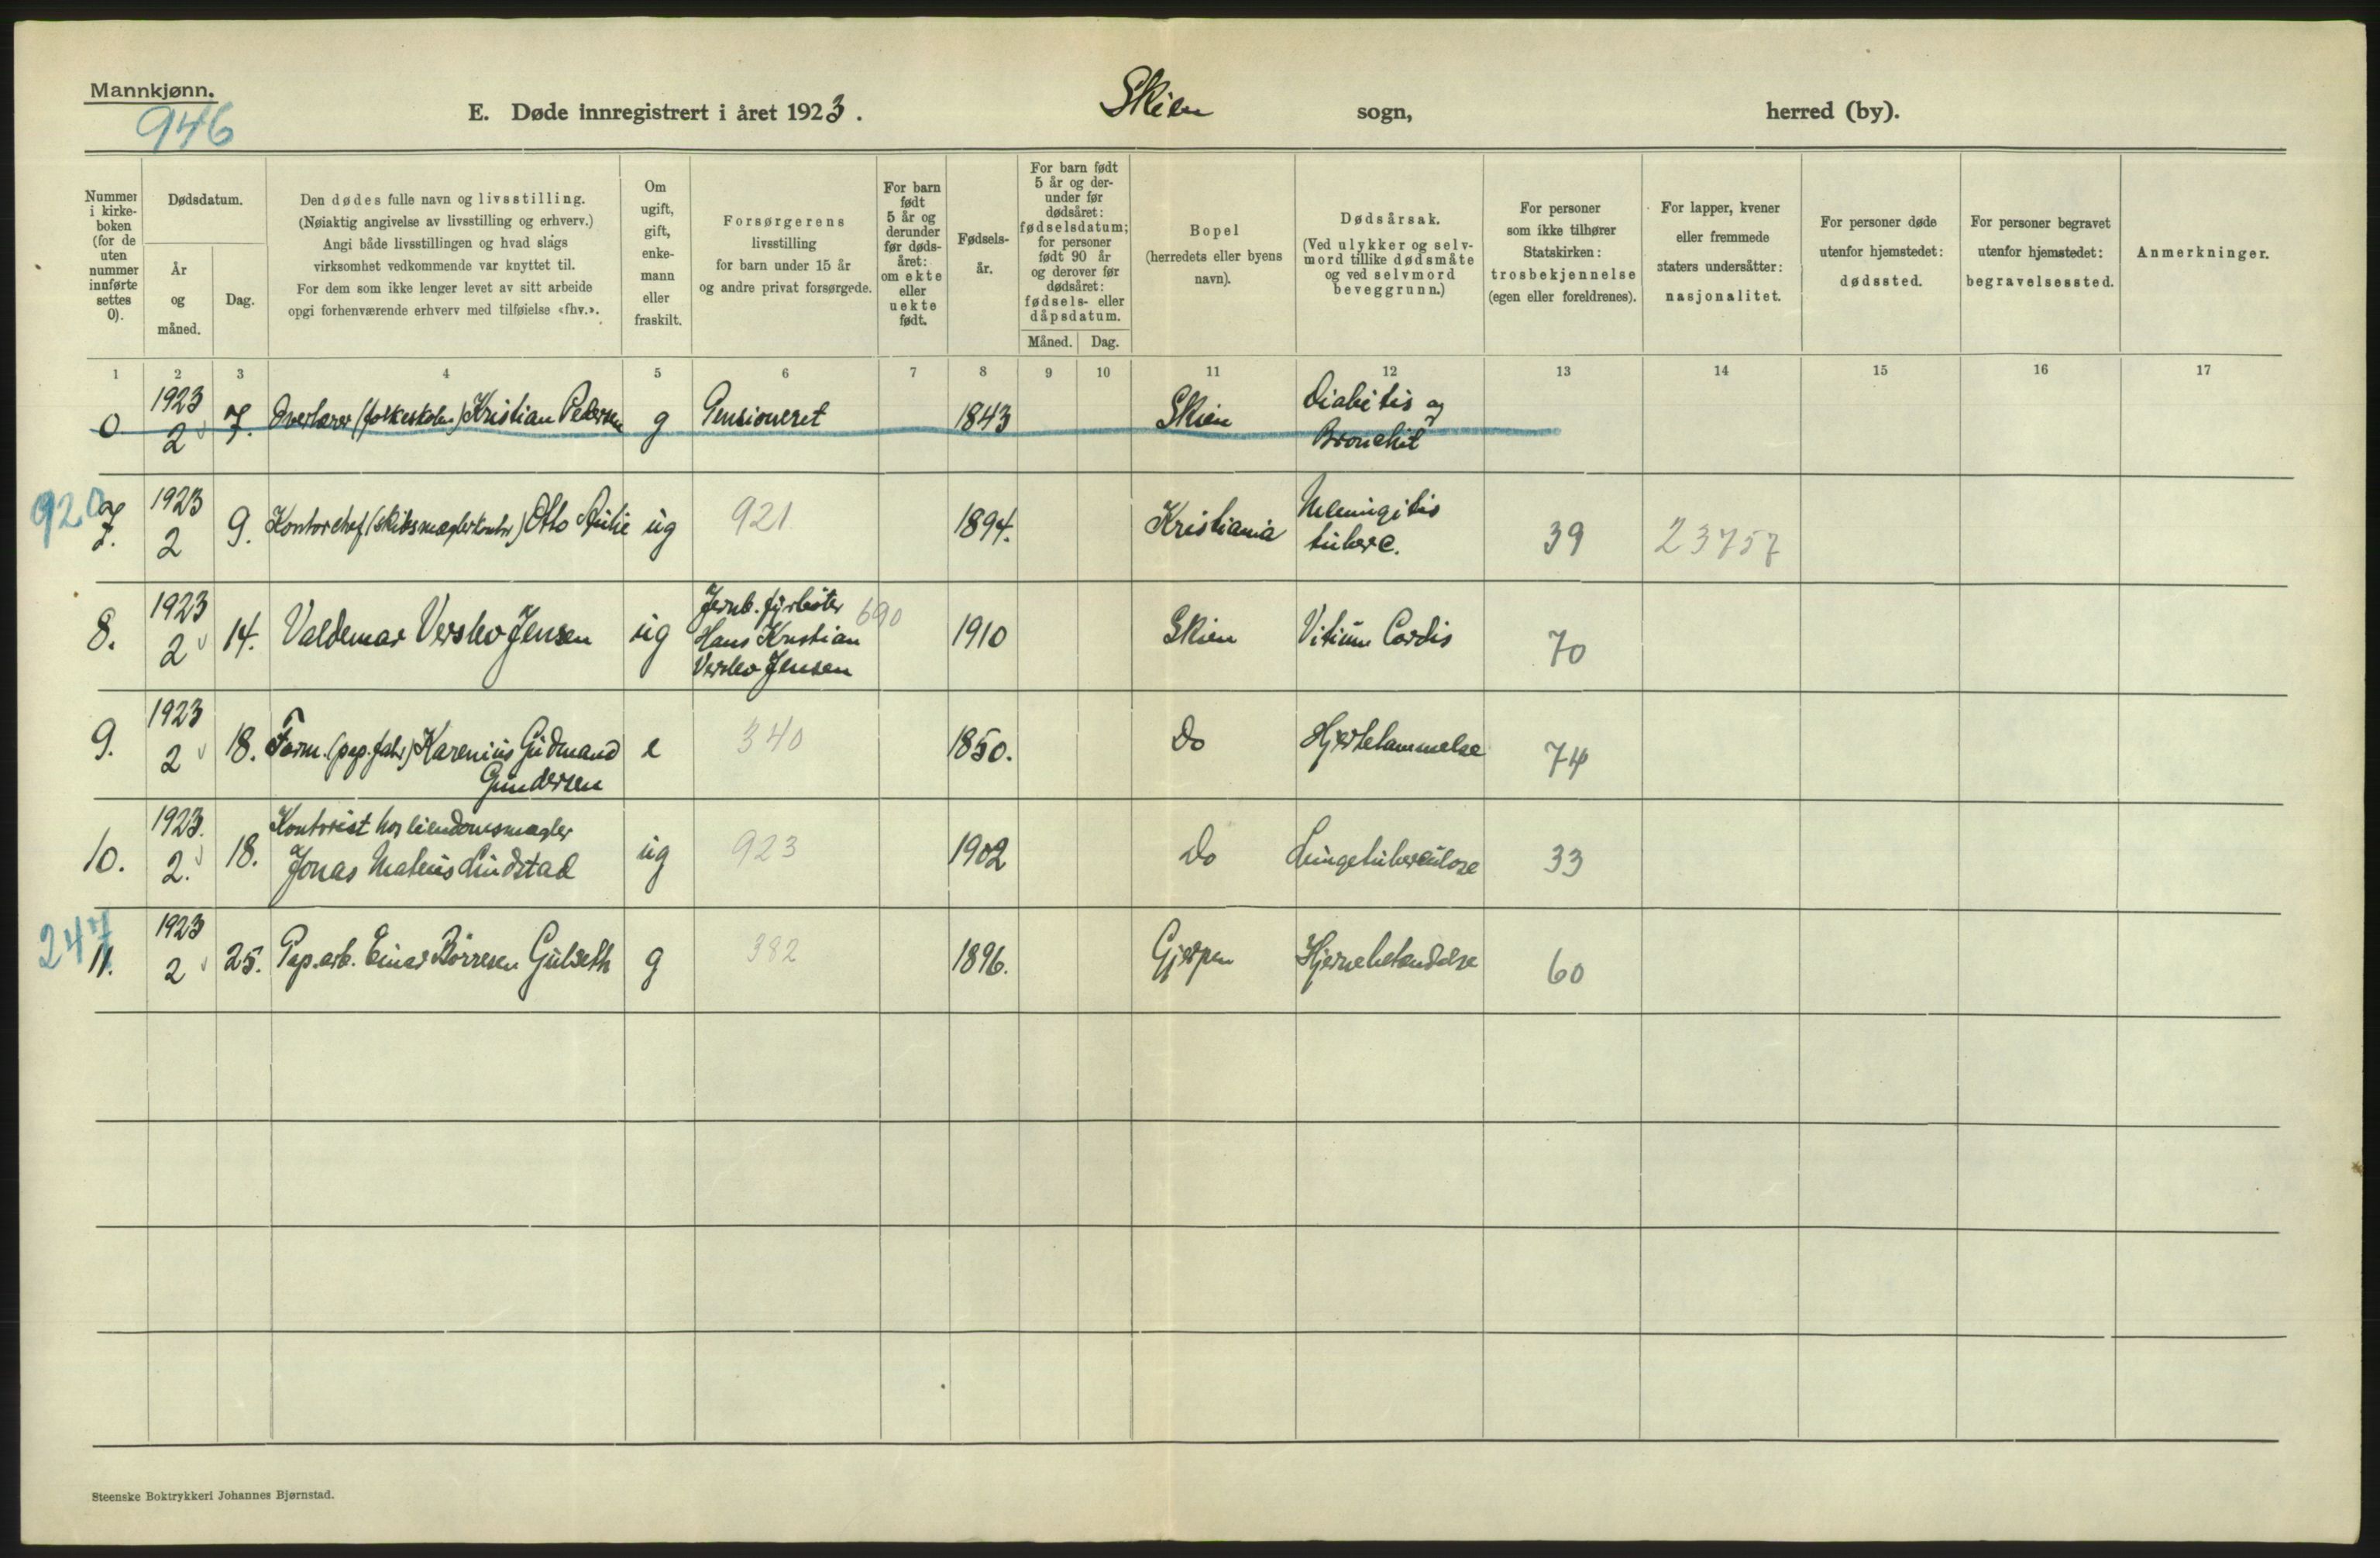 Mannkjønn.
946
E. Døde innregistrert i året 1923. Skien sogn, herred (by).
Nummer i kirke-boken (for de uten nummer innførte settes 0).
Dødsdatum.
År og måned.
Dag.
Den dødes fulle navn og livsstilling.
(Nøiaktig angivelse av livsstilling og erhverv.)
Angi både livsstillingen og hvad slags
virksomhet vedkommende var knyttet til.
For dem som ikke lenger levet av sitt arbeide
opgi forhenværende erhverv med tilføielse «fhv.».
Om ugift, gift, enke-mann eller fraskilt.
Forsørgerens
livsstilling
for barn under 15 år
og andre privat forsørgede.
For barn født 5 år og derunder før døds-året: om ekte eller uekte født.
Fødsels-år.
For barn født 5 år og der-under før dødsåret: fødselsdatum; for personer født 90 år og derover før dødsåret: fødsels- eller dåpsdatum.
Måned. Dag.
Bopel
(herredets eller byens navn).
Dødsårsak.
(Ved ulykker og selv-mord tillike dødsmåte og ved selvmord beveggrunn.)
For personer som ikke tilhører Statskirken: trosbekjennelse (egen eller foreldrenes).
For lapper, kvener eller fremmede staters undersåtter: nasjonalitet.
For personer døde utenfor hjemstedet: dødssted.
For personer begravet utenfor hjemstedet: begravelsessted.
Anmerkninger.
1 2 3 4 5 6 7 8 9 10 11 12 13 14 15 16 17
0 1923 2 7. Overlærer (folkeskolen) Kristian Pedersen g Pensioneret 1843 Skien Diabitis og Bronchit
920
7. 1923 2 9. Kontorchef (skibsmæglerkontor) Otto ug 921 1894. Kristiania Meningitis tuberc. 39 23757
8. 1923 2 14. Valdemar Verslev Jensen ug Jernb. fyrbøter Hans Kristian Verslev Jensen 690 1910 Skien Vitium Cordis 70
9. 1923 2 18. Form. (pap.fabr) Karenius Gudmand Gundersen e 340 1850. Do Hjertelammelse 74
10. 1923. 2. 18. Kontorist hos eiendomsmægler Jonas Mateus Lindstad ug 923 1902 Do Lungetuberculose 33
247
11. 1923 2 25. Pap.arb. Einar Borresen Gulseth g 382 1896. Gjerpen Hjernebetændelse 60
Steenske Boktrykkeri Johannes Bjørnstad.